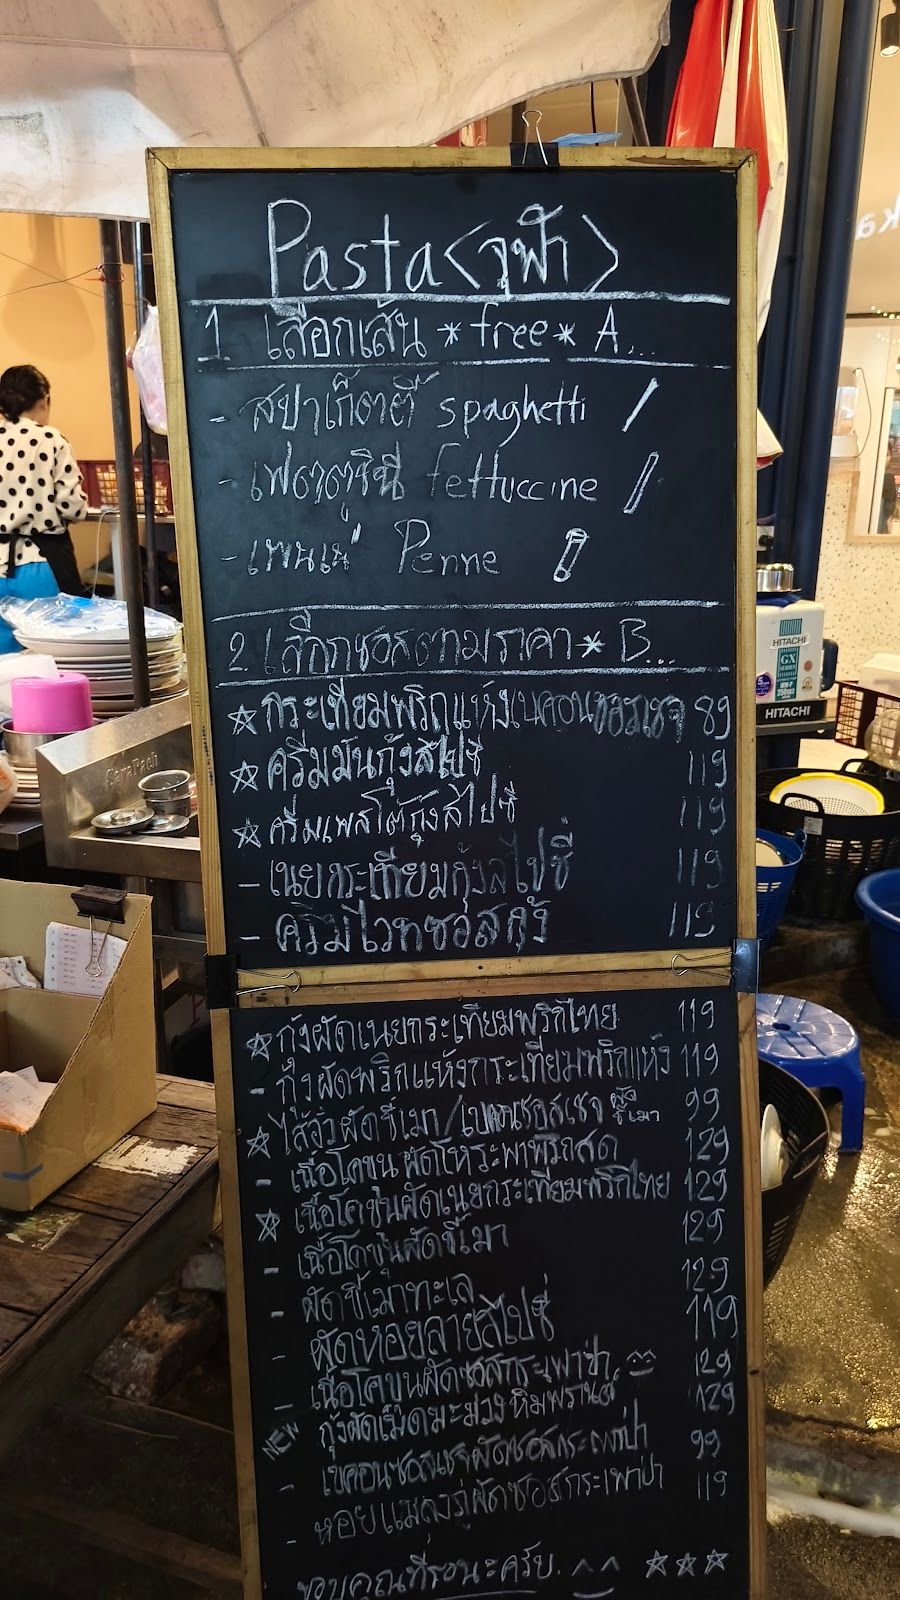 Pasta <จุฬา>
1 เลือกเส้น *free* A...
- สปาเก็ตตี้ spaghetti
- เฟตตูชินี fettuccine
- เพนเน่ Penne
2. เลือกซอสตามราคา * B...
☆ กระเทียมพริกแห้งเบคอนซอสเซจ 89
☆ ครีมมันกุ้งสไปซี่ 119
☆ ครีมเพสโต้กุ้งสไปซี่ 119
- เนยกระเทียมกุ้งสไปซี่ 119
- ครีมไวทซอสกุ้ง 119
☆ กุ้งผัดเนยกระเทียมพริกไทย 119
- กุ้งผัดพริกแห้งกระเทียมพริกแห้ง 119
☆ ไส้อั่วผัดขี้เมา/เบคอนซอสเซจ ผัดขี้เมา 99
- เนื้อโคขุนผัดโหระพาพริกสด 129
☆ เนื้อโคขุนผัดเนยกระเทียมพริกไทย 129
- เนื้อโคขุนผัดขี้เมา 129
- ผัดขี้เมาทะเล 129
- ผัดหอยลายสไปซี่ 119
- เนื้อโคขุนผัดซอสกระเพาป่า 129
NEW กุ้งผัดเม็ดมะม่วงหิมพานต์ 129
- เบคอนซอสเซจผัดซอสกระเพาป่า 99
- หอยแมลงภู่ผัดซอสกระเพาป่า 119
ขอบคุณที่รอนะครับ. ^^ ☆☆☆
HITACHI
GX
SERIES
HITACHI
SeraPach